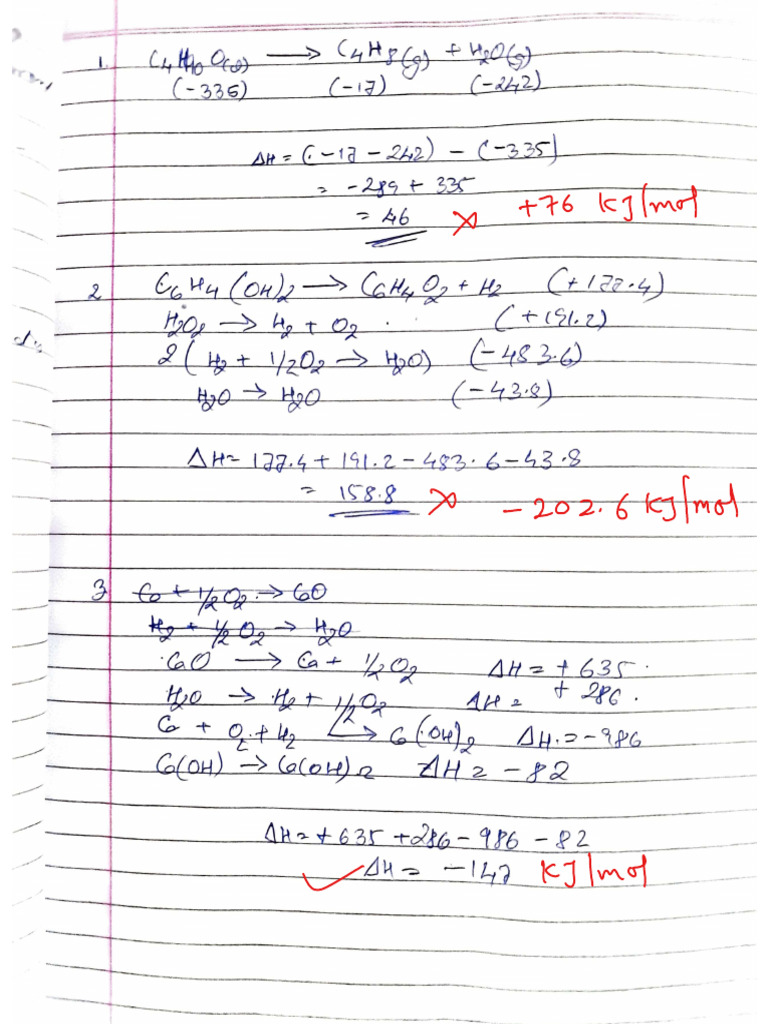 1. C4H10O(g) → C4H8(g) + H2O(g)
(-335) (-17) (-242)
ΔH = (-17 - 242) - (-335)
= -289 + 335
= 46 × +76 KJ/mol
2 C6H4(OH)2 → C6H4O2 + H2 (+177.4)
H2O2 → H2 + O2 (+191.2)
2(H2 + 1/2O2 → H2O) (-483.6)
H2O → H2O (-43.8)
ΔH = 177.4 + 191.2 - 483.6 - 43.8
= 158.8 × -202.6 KJ/mol
3 Ca + 1/2O2 → CaO
H2 + 1/2O2 → H2O
CaO → Ca + 1/2O2 ΔH = +635.
H2O → H2 + 1/2O2 ΔH = +286.
Ca + O2 + H2 → Ca(OH)2 ΔH = -986
Ca(OH) → Ca(OH)2 ΔH = -82
ΔH = +635 +286 - 986 - 82
✓ ΔH = -147 KJ/mol